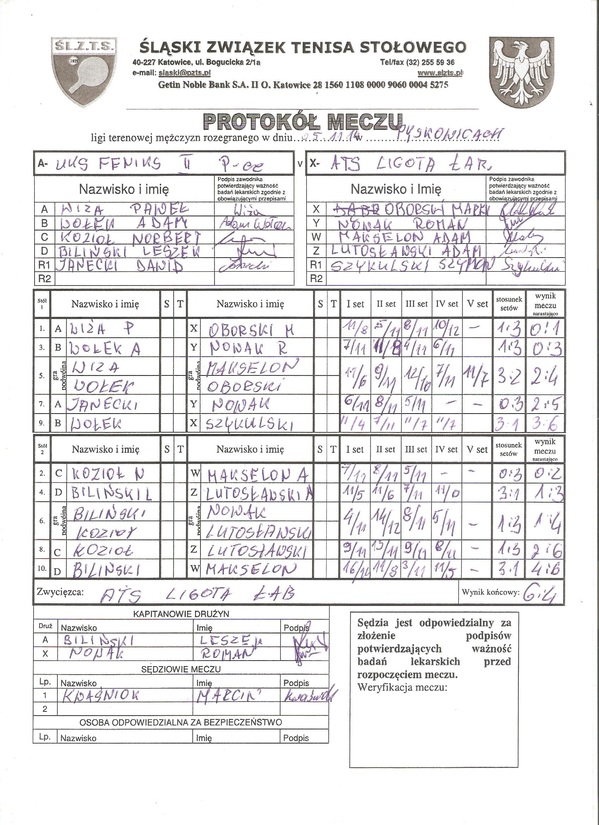 ŚL.Z.T.S.
ŚLĄSKI ZWIĄZEK TENISA STOŁOWEGO
40-227 Katowice, ul. Bogucicka 2/1a Tel/fax (32) 255 59 36
e-mail: slaski@pzts.pl www.slzts.pl
Getin Noble Bank S.A. II O. Katowice 28 1560 1108 0000 9060 0004 5275
PROTOKÓŁ MECZU
ligi terenowej mężczyzn rozegranego w dniu 15.11.14 PYSKOWICACH
A- UKS FENIKS II P-ce v X- ATS LIGOTA ŁAB.
Nazwisko i imię Podpis zawodnika potwierdzający ważność badań lekarskich zgodnie z obowiązującymi przepisami Nazwisko i Imię Podpis zawodnika potwierdzający ważność badań lekarskich zgodnie z obowiązującymi przepisami
A WIZA PAWEŁ Wiza X OBORSKI MAREK
B WOŁEK ADAM Adam Wołek Y NOWAK ROMAN
C KOZIOŁ NORBERT W MAKSELON ADAM
D BILIŃSKI LESZEK Z LUTOSŁAWSKI ADAM
R1 JANECKI DAWID R1 SZYKULSKI SZYMON Szykulski
R2 R2
Stół 1 Nazwisko i imię S T Nazwisko i imię S T I set II set III set IV set V set stosunek setów wynik meczu narastająco
1. A WIZA P X OBORSKI M 11/8 5/11 8/11 10/12 – 1:3 0:1
3. B WOŁEK A Y NOWAK R 7/11 11/8 4/11 6/11 – 1:3 0:3
5. gra podwójna WIZA gra podwójna MAKSELON 11/6 9/11 12/10 7/11 11/7 3:2 2:4
WOŁEK OBORSKI
7. A JANECKI Y NOWAK 6/11 8/11 5/11 – – 0:3 2:5
9. B WOŁEK X SZYKULSKI 11/4 7/11 11/7 11/7 3:1 3:6
Stół 2 Nazwisko i imię S T Nazwisko i imię S T I set II set III set IV set V set stosunek setów wynik meczu narastająco
2. C KOZIOŁ N W MAKSELON A 7/12 8/11 5/11 – – 0:3 0:2
4. D BILIŃSKI L Z LUTOSŁAWSKI A 11/5 11/6 7/11 11/0 – 3:1 1:3
6. gra podwójna BILIŃSKI gra podwójna NOWAK 4/11 14/12 8/11 5/11 – 1:3 1:4
KOZIOŁ LUTOSŁAWSKI
8. C KOZIOŁ Z LUTOSŁAWSKI 9/11 13/11 9/11 8/11 – 1:3 2:6
10. D BILIŃSKI W MAKSELON 16/14 11/8 3/11 11/5 – 3:1 4:6
Zwycięzca: ATS LIGOTA ŁAB Wynik końcowy: 6:4
KAPITANOWIE DRUŻYN
Druż Nazwisko Imię Podpis
A BILIŃSKI LESZEK
X NOWAK ROMAN
SĘDZIOWIE MECZU
Lp. Nazwisko Imię Podpis
1 KWAŚNIOK MARCIN Kwaśniok
2
OSOBA ODPOWIEDZIALNA ZA BEZPIECZEŃSTWO
Lp. Nazwisko Imię Podpis
Sędzia jest odpowiedzialny za
złożenie podpisów
potwierdzających ważność
badań lekarskich przed
rozpoczęciem meczu.
Weryfikacja meczu: